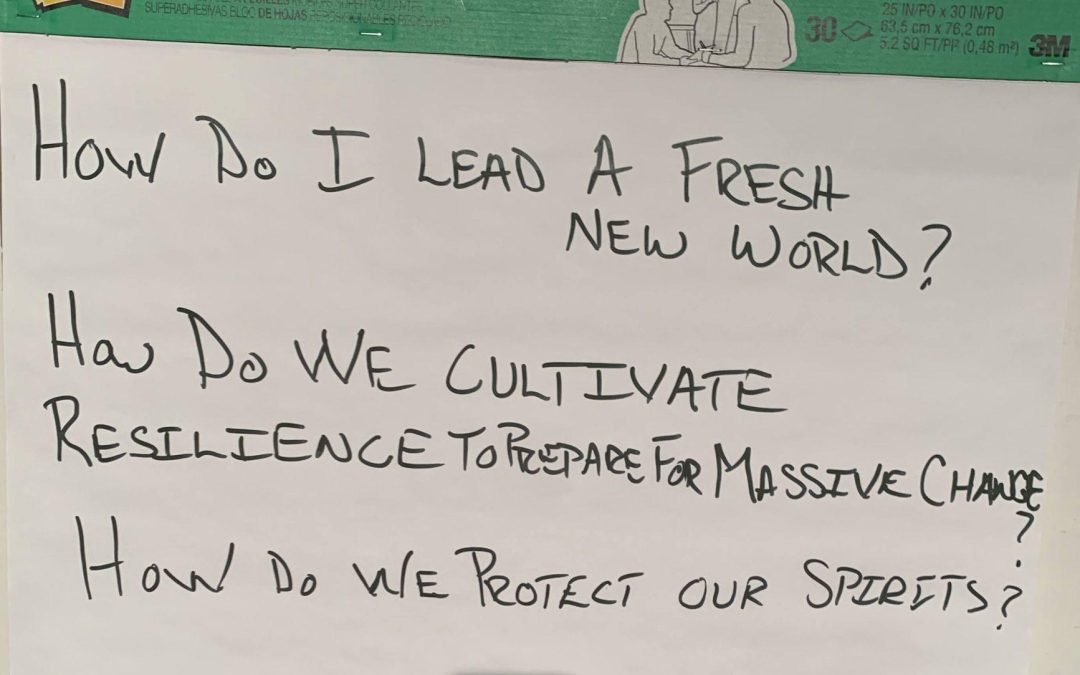 SUPERADHESIVAS BLOC DE HOJAS REPOSICIONABLES
30
25 IN/PO x 30 IN/PO
63,5 cm x 76,2 cm
5.2 SQ FT/PI² (0,48 m²)
3M
HOW DO I LEAD A FRESH
NEW WORLD?
HOW DO WE CULTIVATE
RESILIENCE TO PREPARE FOR MASSIVE CHANGE
?
HOW DO WE PROTECT OUR SPIRITS?